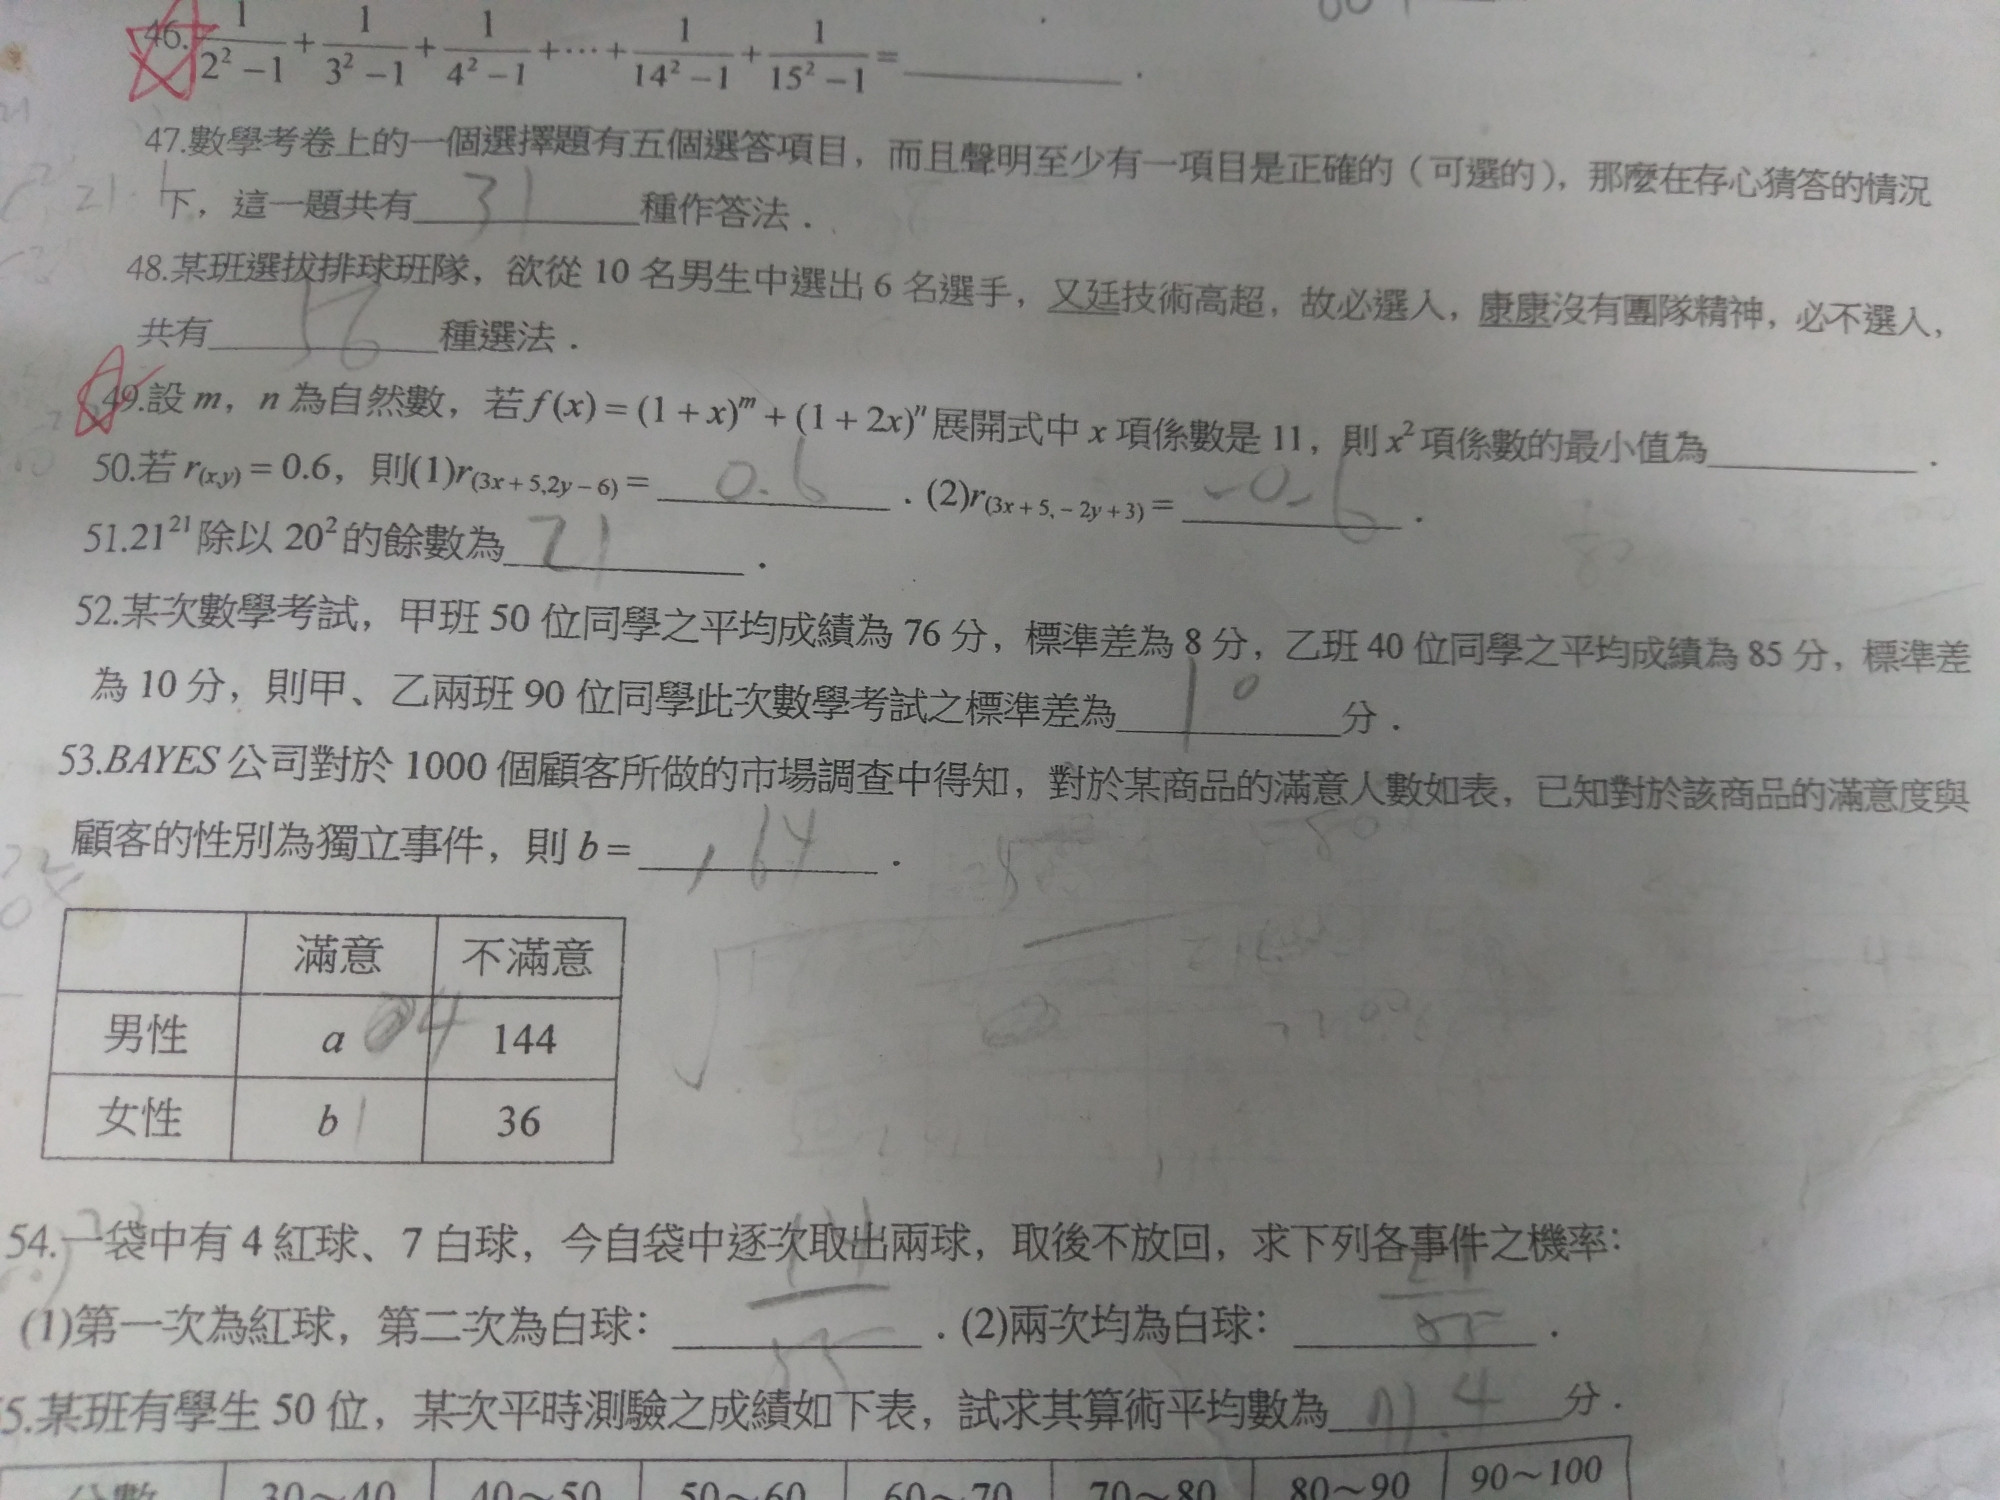 46. 1/(2²−1) + 1/(3²−1) + 1/(4²−1) + ⋯ + 1/(14²−1) + 1/(15²−1) = ________ .
47.數學考卷上的一個選擇題有五個選答項目，而且聲明至少有一項目是正確的（可選的），那麼在存心猜答的情況
下，這一題共有 31 種作答法．
48.某班選拔排球班隊，欲從 10 名男生中選出 6 名選手，又廷技術高超，故必選入，康康沒有團隊精神，必不選入，
共有 56 種選法．
49.設 m，n 為自然數，若 f(x) = (1 + x)^m + (1 + 2x)^n 展開式中 x 項係數是 11，則 x² 項係數的最小值為________．
50.若 r(x,y) = 0.6，則(1)r(3x + 5,2y − 6) = 0.6 ．(2)r(3x + 5, − 2y + 3) = -0.6 ．
51.21²¹ 除以 20² 的餘數為 21 ．
52.某次數學考試，甲班 50 位同學之平均成績為 76 分，標準差為 8 分，乙班 40 位同學之平均成績為 85 分，標準差
為 10 分，則甲、乙兩班 90 位同學此次數學考試之標準差為 10 分．
53.BAYES 公司對於 1000 個顧客所做的市場調查中得知，對於某商品的滿意人數如表，已知對於該商品的滿意度與
顧客的性別為獨立事件，則 b = 164 ．
滿意 不滿意
男性 a 144
女性 b 36
54.一袋中有 4 紅球、7 白球，今自袋中逐次取出兩球，取後不放回，求下列各事件之機率：
(1)第一次為紅球，第二次為白球： 14/55 ．(2)兩次均為白球： 21/55 ．
5.某班有學生 50 位，某次平時測驗之成績如下表，試求其算術平均數為 71.4 分．
分數 30～40 40～50 50～60 60～70 70～80 80～90 90～100